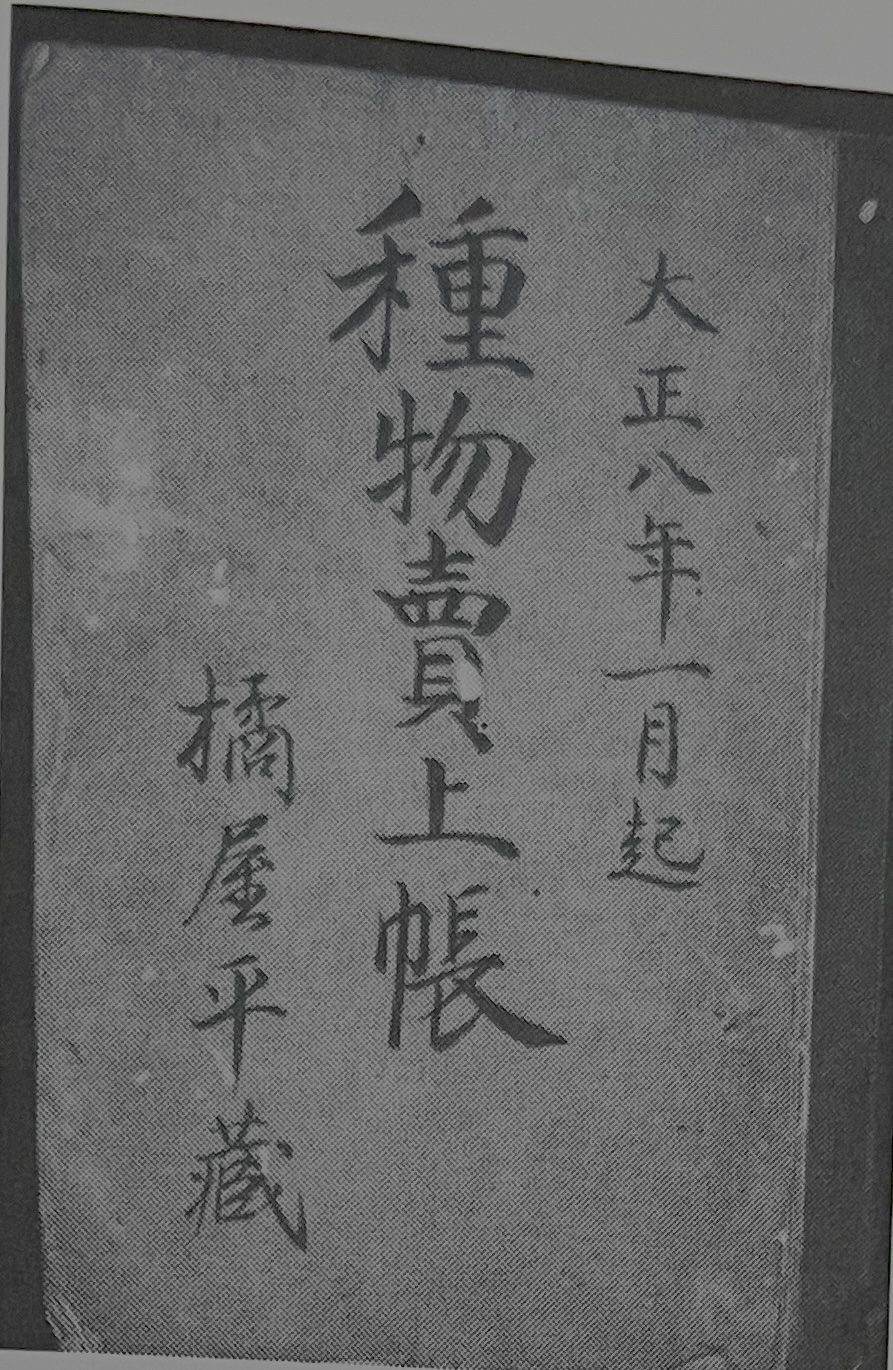 大正八年一月起
種物賣上帳
橘屋平藏